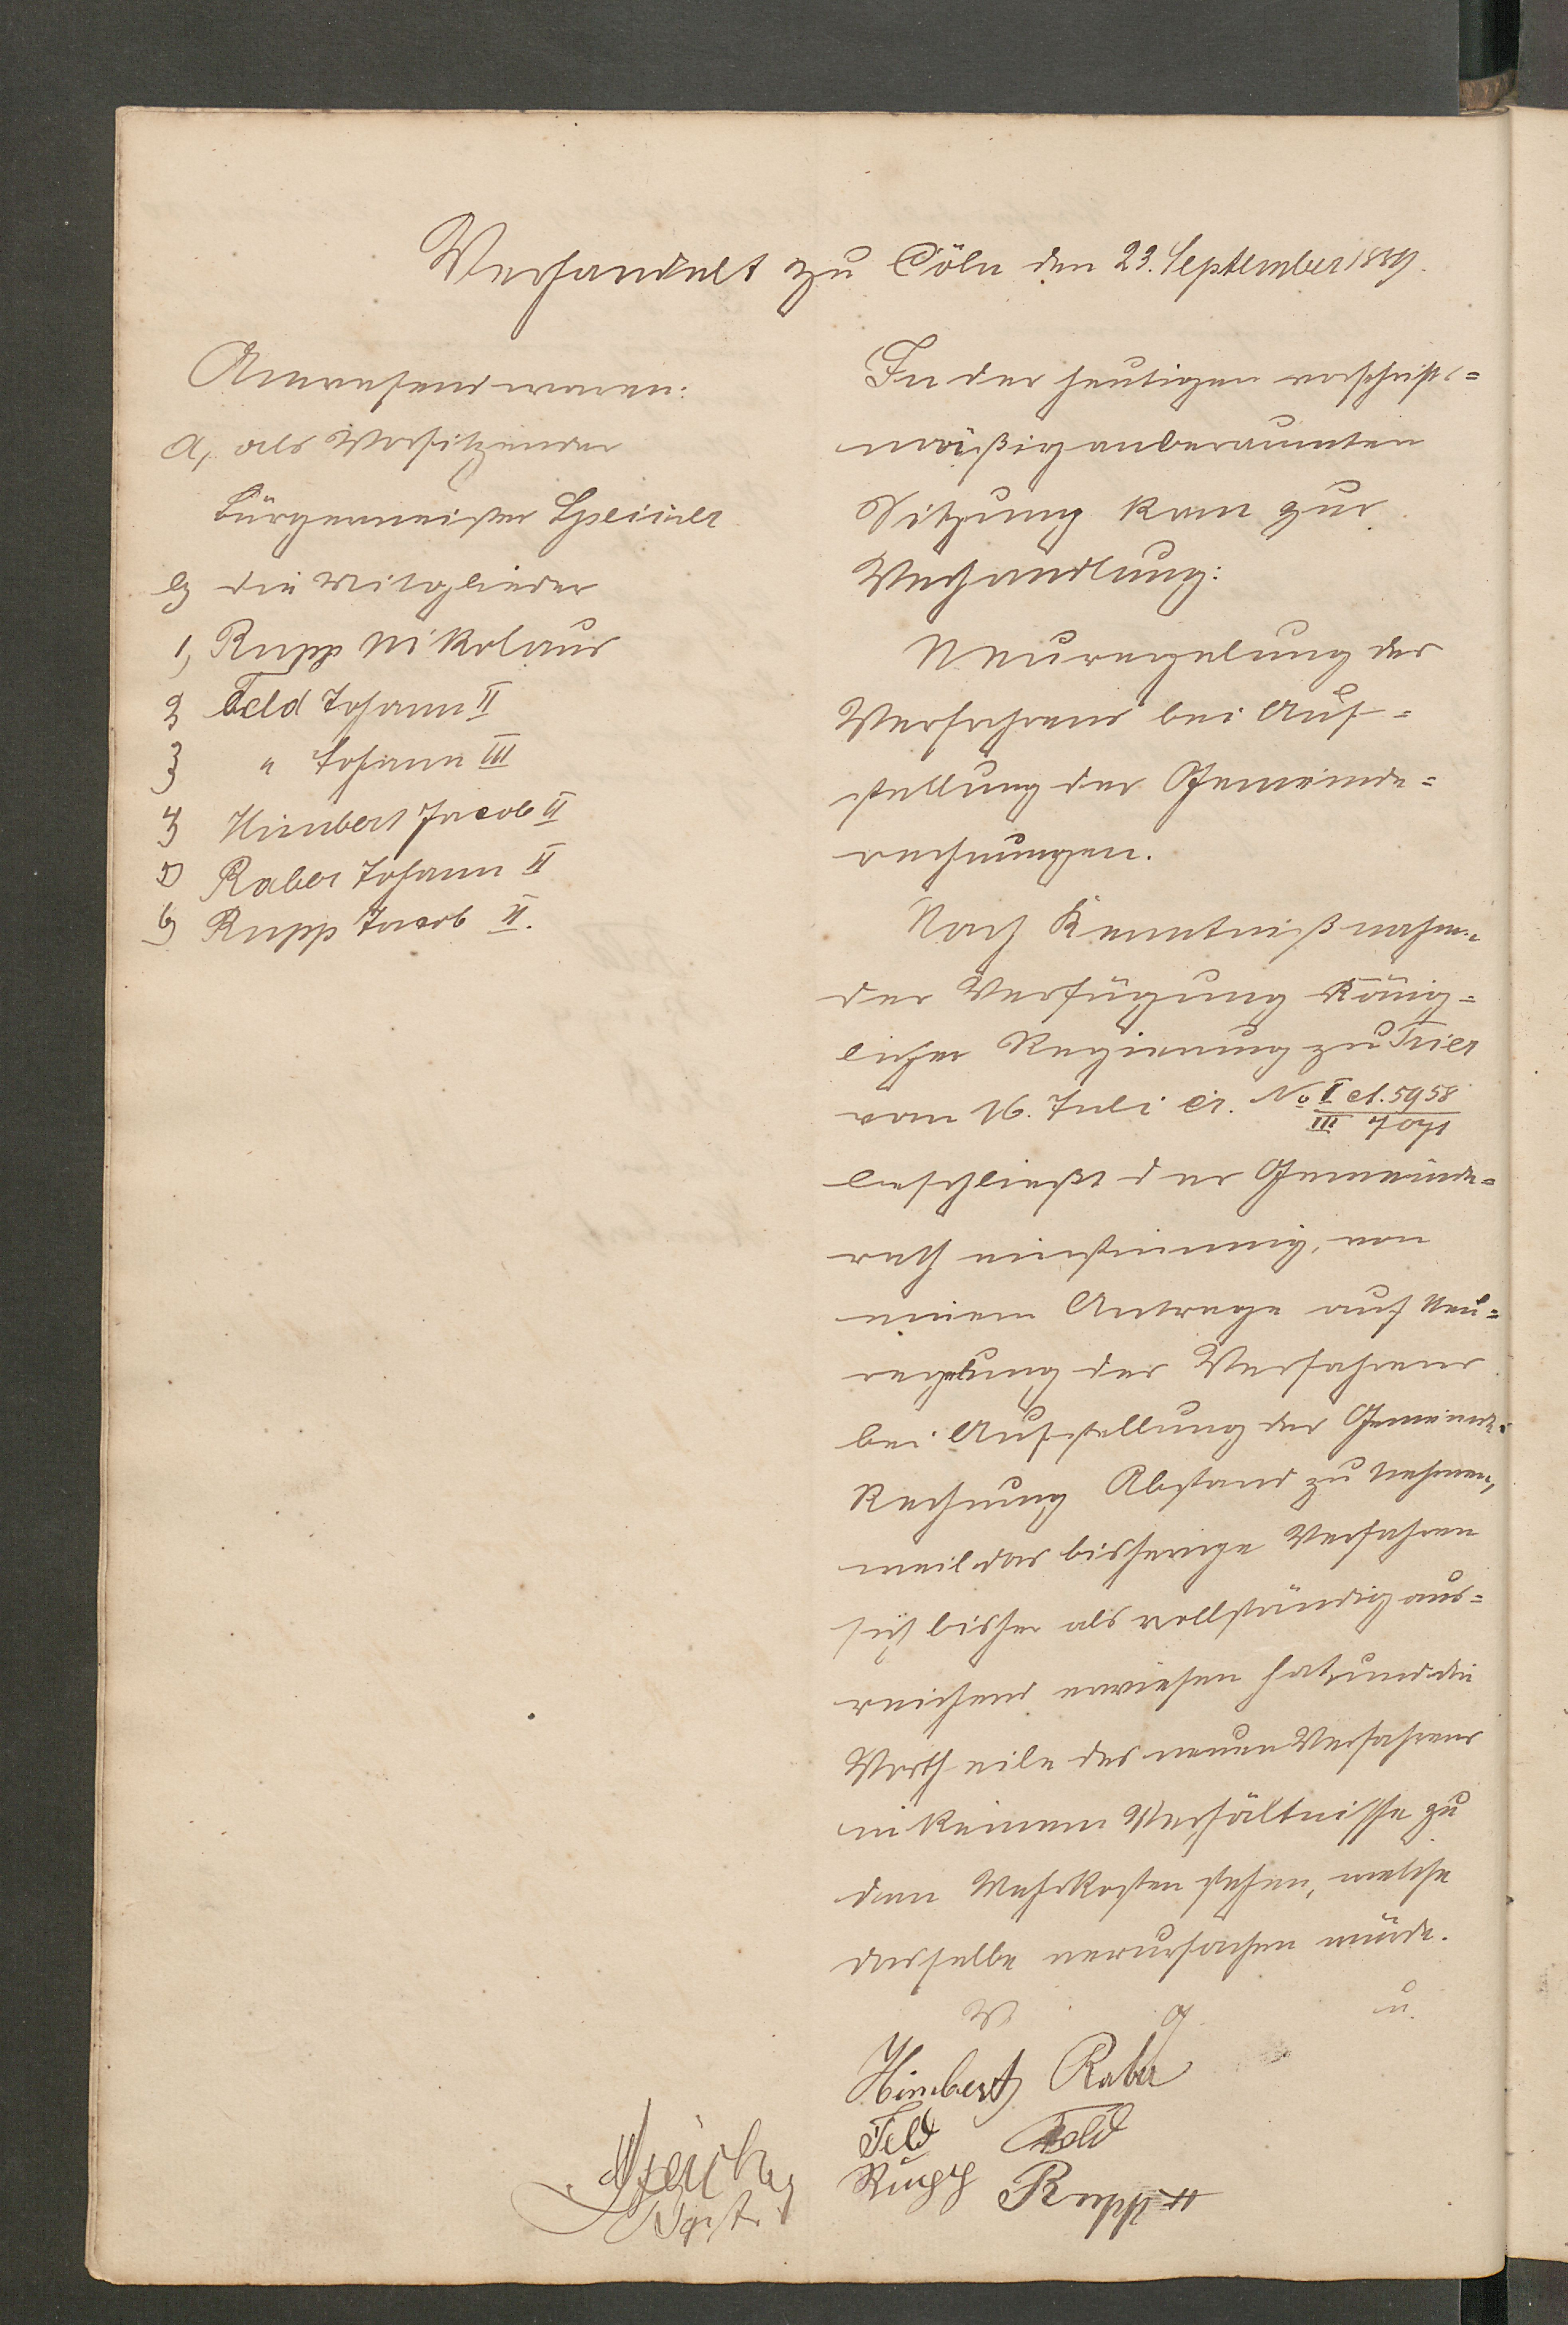 Verhandelt zu Cöln den 23. September 1889.
Anwesend waren:
a, als Vorsitzender
Bürgermeister
b, die Mitglieder
1, Rupp Nikolaus
2, Feld Johann II
3, " Johann III
4, Himbert Jacob II
5, Raber Johann II
6, Rupp Jacob II.
In der heutigen vorschrifts=
mäßig anberaumten
Sitzung kam zur
Verhandlung:
Neuregelung des
Verfahrens bei Auf=
stellung der Gemeinde=
rechnungen.
Nach Kenntnißnahme
der Verfügung König=
licher Regierung zu Trier
vom 16. Juli cr. No I et. 5958
III 7071
beschließt der Gemeinde=
rath einstimmig, von
einem Antrage auf Neu=
regelung des Verfahrens
bei Aufstellung der Gemeinde=
Rechnung Abstand zu nehmen,
weil das bisherige Verfahren
sich bisher als vollständig aus=
reichend erwiesen hat, und die
Vortheile des neuen Verfahrens
in keinem Verhältnisse zu
den Mehrkosten stehen, welche
dasselbe verursachen würde.
V. g. u.
Himbert Raber
Feld Feld
Rupp Rupp II
Bgrstr.